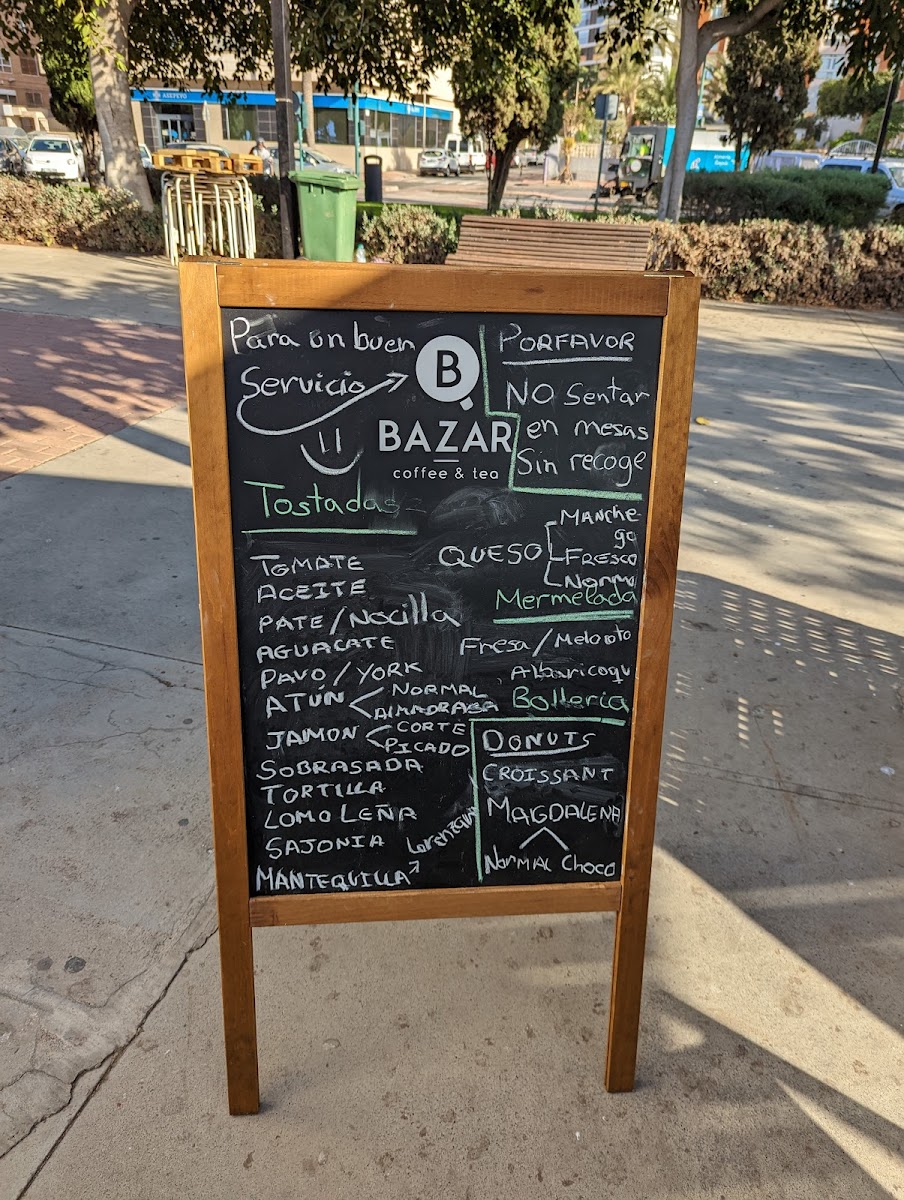 Para un buen
Servicio
B
BAZAR
coffee & tea
PORFAVOR
NO Sentar
en mesas
Sin recoge
Tostadas
TOMATE
ACEITE
PATE/Nocilla
AGUACATE
PAVO/YORK
ATÚN
NORMAL
ALMADRABA
JAMON
CORTE
PICADO
SOBRASADA
TORTILLA
LOMO LEÑA
SAJONIA
MANTEQUILLA
QUESO
MANCHE-
go
FRESCO
Norma
Mermelada
Fresa/Melocoto
Albaricoqu
Bolleria
DONUTS
CROISSANT
MAGDALENA
NORMAL Choco